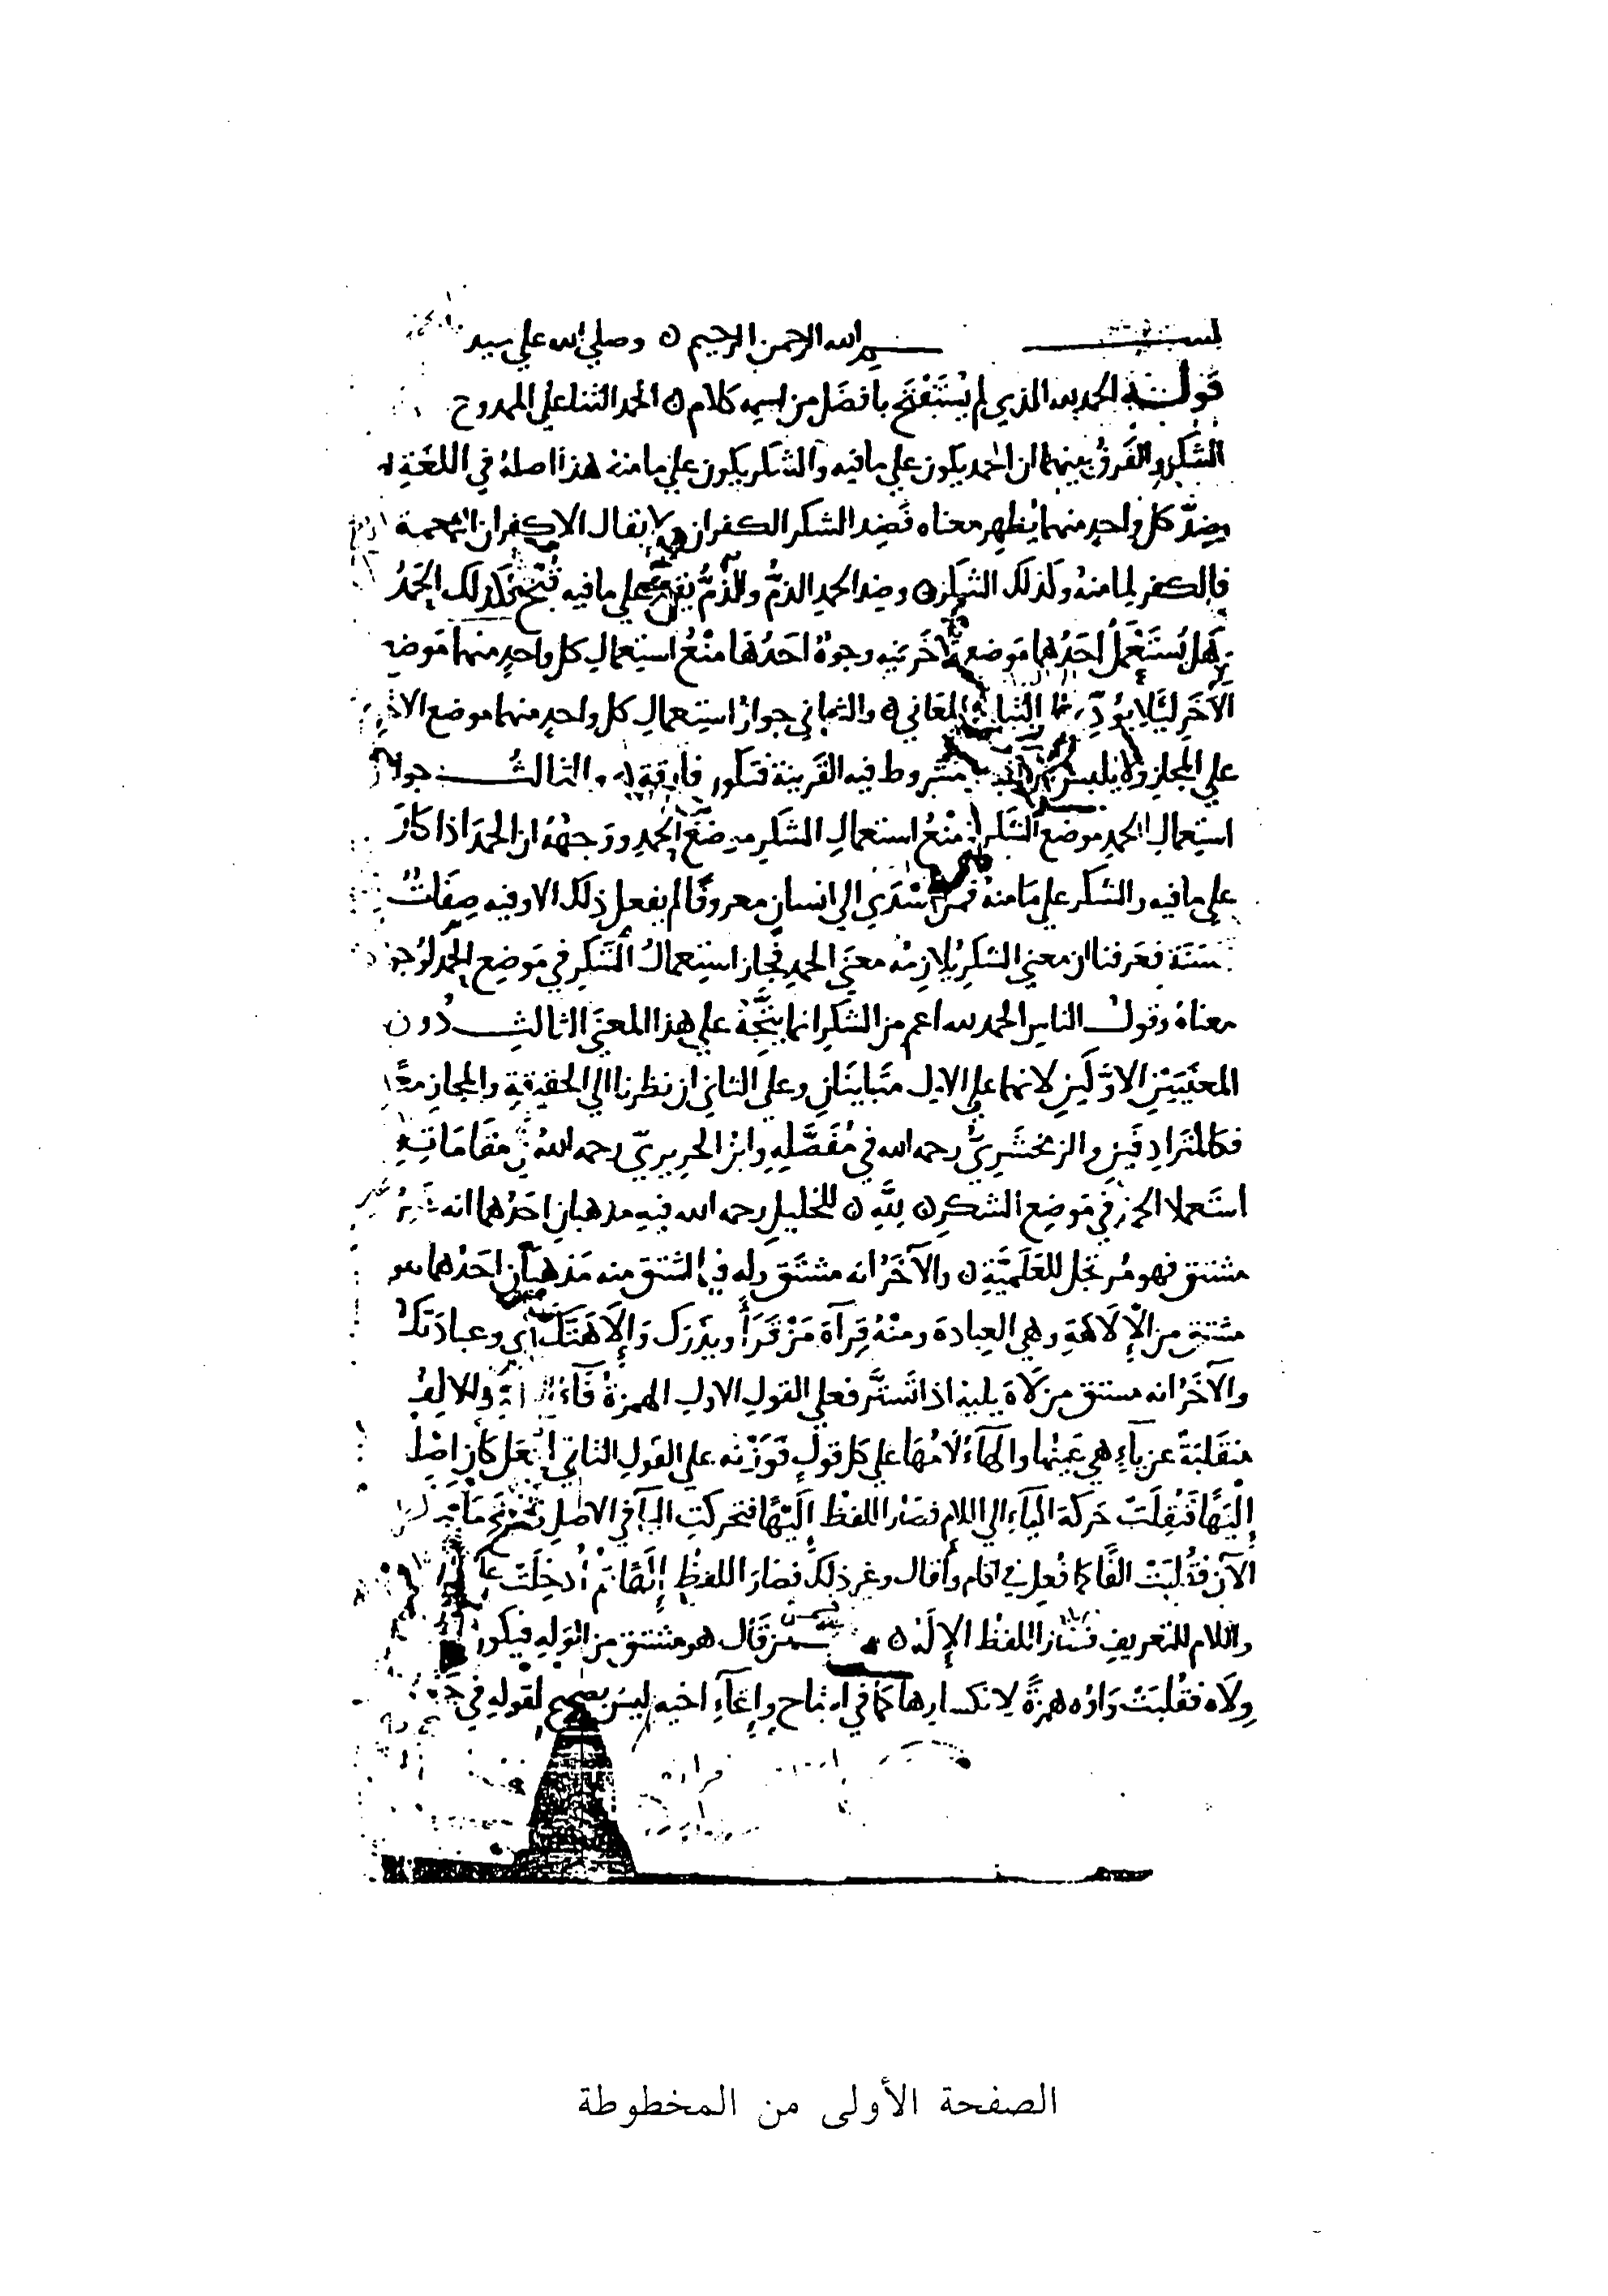 بسم الله الرحمن الرحيم ن وصلى الله على سيد
قوله الحمد لله الذي لم يُسْتَفْتَح بافضَل من اسمه كلام ن الحمد الثناء على الممدوح
الشكر والفرقُ بينهما ان الحمد يكون على ما فيه والشكر يكون على ما منه هذا اصله في اللغة
وضِدّ كل واحدٍ منهما يُظهر معناه فَضِد الشكر الكفران
فالكفر لما منه وكذلك الشكر ن وضد الحمد الذمُّ والذمُّ على ما فيه وكذلك الحَمْدُ
هَل يُستَعْمَلُ احَدُهما مَوضع الآخر فيه وجوهٌ احَدُهَا مَنْعُ استِعمالِ كل واحدٍ منهما مَوضع
الآخَر لئلا المعَاني ن والثاني جوازُ استِعمالِ كل واحدٍ منهما موضع الاخر
على المجاز ولا مشروط فيه القَرينة فتكون فارقة ن والثالث جواز
استِعمال الحمدِ موضع الشكر مَنْعُ استعمالِ الشكرِ موضعَ الحمدِ ووَجهُهُ ان الحمدَ اذا كانَ
على ما فيه والشكر على مَا منهُ فمن اسْدَى الى انسانٍ معروفًا لم يفعل ذلك الا وفيه صِفَاتٌ
حسَنَة فعَرفنا ان معنى الشكرِ يُلازمُه معنَى الحمدِ فجاز استِعمالُ الشكرِ في مَوضِع الحَمد لوُجود
معناهُ وقول الناس الحمد لله اعم من الشكر انما يتَّجهُ على هذا المعنَى الثالث دُون
المعنَيَيْنِ الاوَّلَينِ لانهما على الاول متَبَاينَانِ وعلى الثاني ان نظرنا الى الحقيقةِ والمجازِ معًا
فكالمترَادِفَينِ والزمخشَرِيّ رحمه الله في مُفَصَّلِهِ وابن الحريريّ رحمه اللهُ في مقَامَاتِهِ
استَعملا الحمد في مَوضِع الشكر ن لِلّهِ ن للخليلِ رحمه الله فيه مذهبانِ احَدُهما انه غَيرُ
مشتق فهو مُرتجل للعَلَمِيَّةِ ن والآخَرُ انه مشتَق وله في المشتق منه مَذهبَانِ احَدُهما هو
مشتق من الإلَاهَةِ وهي العِبادة ومنْهُ قِرآة مَنْ قَرَأَ ويَذَرَك وَإلَاهَتَكَ اي وعبادَتكَ
والآخَرُ انه مشتق من لَاهَ يليهُ اذا تَستَّر فعلى القولِ الاول الهمزةُ فَآء والالِفُ
منقَلبَةٌ عن يآءٍ هي عَينُها والهَآءُ لَامُهَا على كل قولٍ فَوَزْنه على القولِ الثاني كَان اصْلُ
إلْيَهًا فَنُقِلَت حَركةُ اليآءِ الى اللام فصَار اللفظُ إلَيْهًا فتحركت اليآ في الاصلِ
الآن فقُلبَتْ الفًا كما فُعِل في اقام واقال وغير ذلك فصَارَ اللفظُ إلَهًا ثم أدخِلَت
واللام للتعريفِ فصَار اللفظ الإلَهُ ن ومن قَال هو مشتق من الوَلهِ فيكون
وِلَاه فقُلبَتْ وَاوُه همزةً لانكسارها كما في اشاح وإعَآءِ اخيه ليسَ بصحيح لقوله في
الصفحة الأولى من المخطوطة